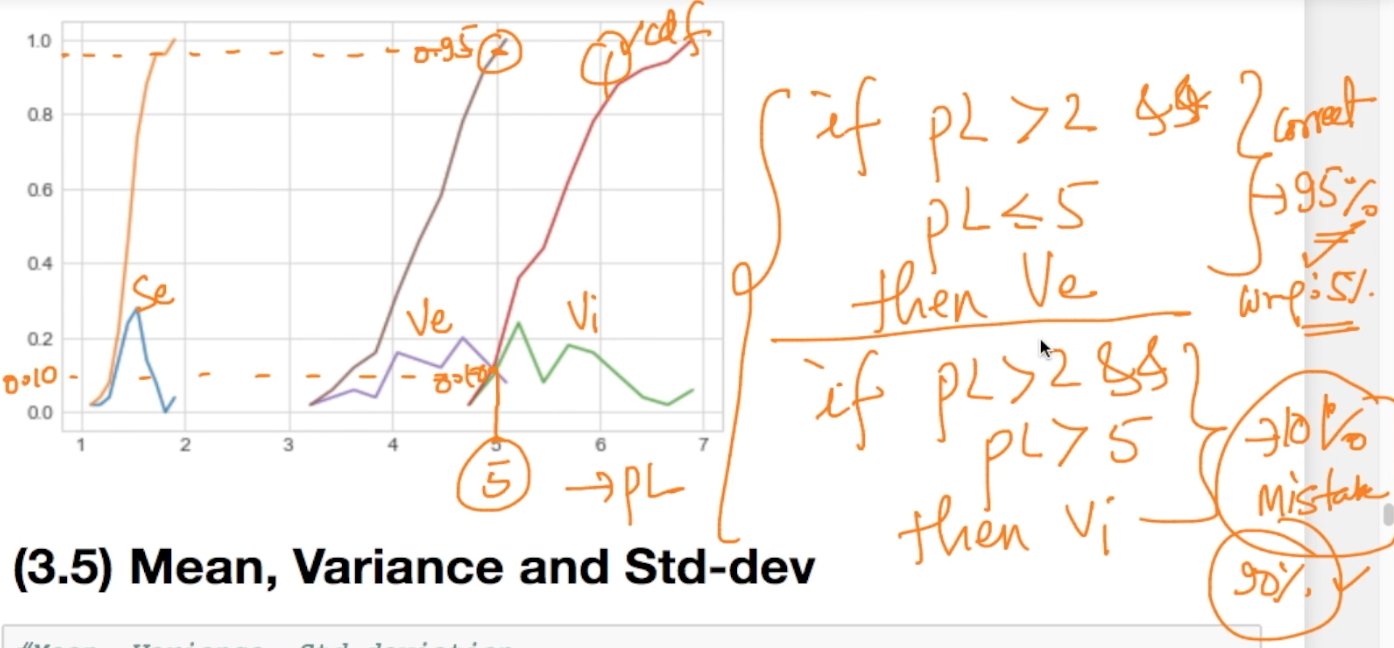 1.0
0.8
0.6
0.4
0.2
0.0
1 2 3 4 5 6 7
0.95
cdf
Se
Ve
Vi
0.10
0.10
5 → PL
if PL > 2 &&
PL ≤ 5
then Ve
correct
→ 95%
wrng: 5%
if PL > 2 &&
PL > 5
then Vi
→ 10%
Mistake
90%
(3.5) Mean, Variance and Std-dev
#Mean, Variance, Std-deviation